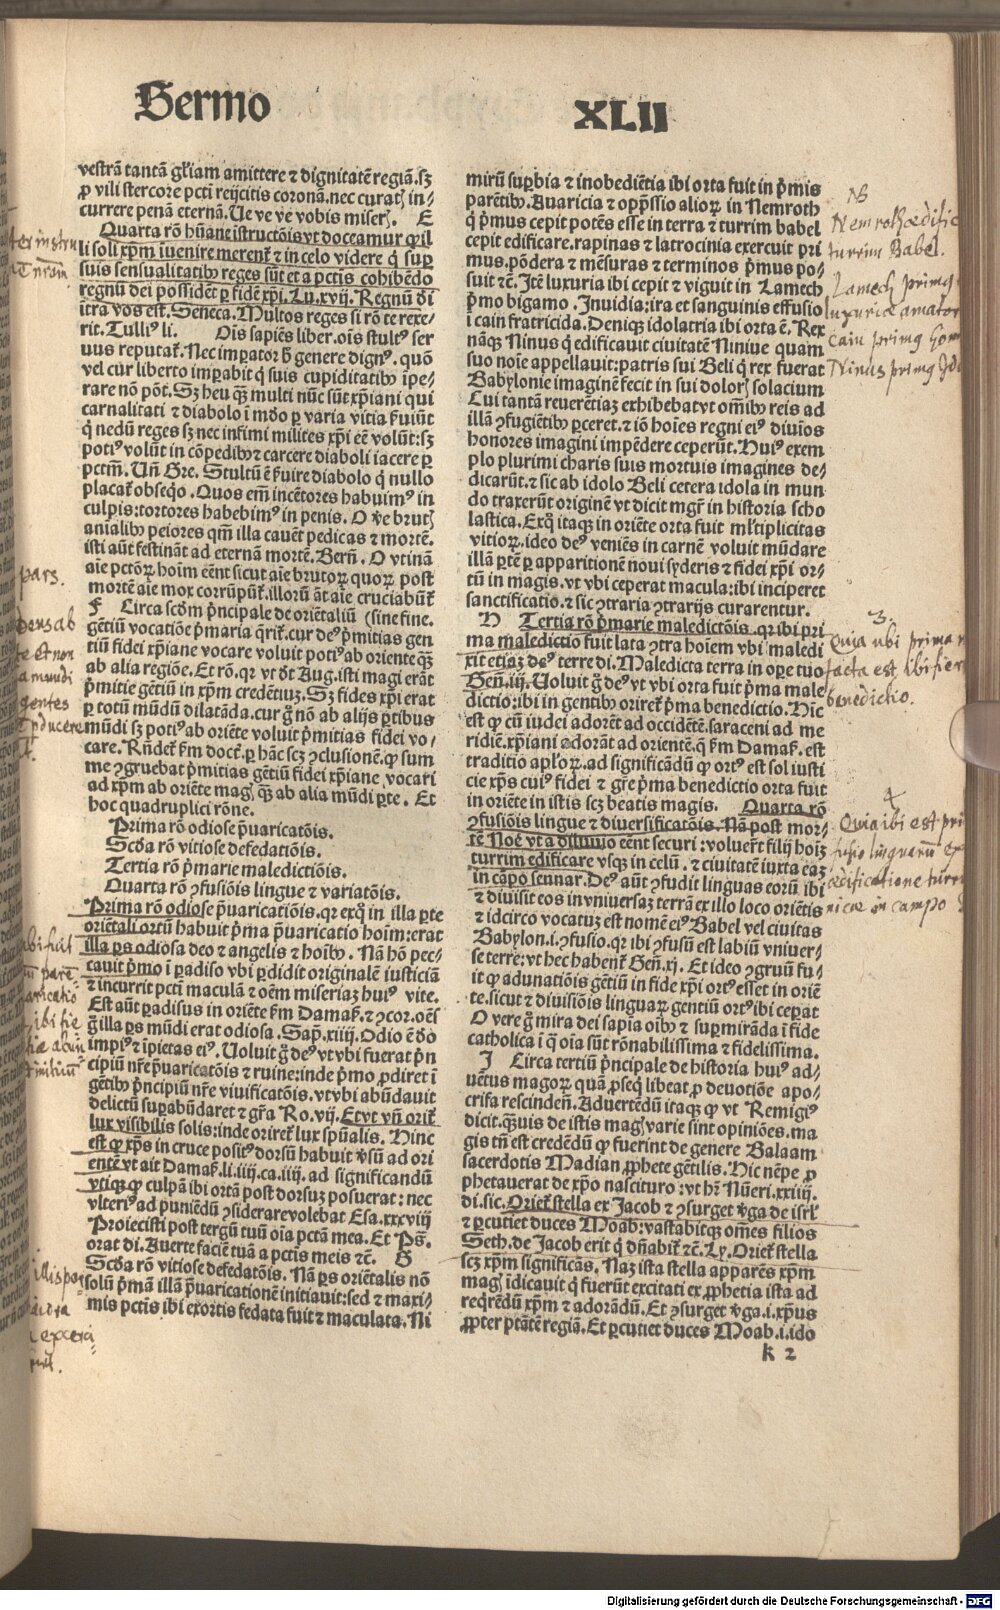 Sermo XLII
vestrã tantã gl'iam amittere ⁊ dignitatẽ regiã. sꝫ
ꝓ vili stercore pcti reijcitis coronã. nec curatꝭ in-
currere penã eternã. Ue ve ve vobis miserꝭ. E
Quarta rõ hũane istructõis vt doceamur ꝙ il
li soli xp̃m iuenire merent̃ ⁊ in celo videre q̇ suꝑ
suis sensualitatibꝰ reges sũt et a pctis cohibẽdo
regnũ dei possidẽt ꝑ fidẽ xp̃i. Lu. xvij. Regnũ d̃i
itra vos est. Seneca. Multos reges si rõ te rexe-
rit. Tulliꝰ li. Ois sapiẽs liber. ois stultꝰ ser
uus reputat̃. Nec imꝑator h̃ genere dignꝰ. quõ
vel cur liberto imꝑabit q̇ suis cupiditatibꝰ ipe-
rare nõ põt. Sꝫ heu qꝫ multi nũc sũt xp̃iani qui
carnalitati ⁊ diabolo i mõo ꝑ varia vitia ẜuiũt
q̇ nedũ reges sꝫ nec infimi milites xp̃i eẽ volũt: sꝫ
potiꝰ volũt in cõpedibꝰ ⁊ carcere diaboli iacere ꝑ
pctm̃. Uñ Gre. Stultũ ẽ ẜuire diabolo q̇ nullo
placat̃ obseq̇o. Quos em̃ incẽtores habuimꝰ in
culpis: tortores habebimꝰ in penis. O ꝟe brutꝭ
anialibꝰ peiores qm̃ illa cauẽt pedicas ⁊ mortẽ.
isti aũt festinãt ad eternã mortẽ. Berñ. O vtinã
aie pctõꝝ hoim eẽnt sicut aie brutoꝝ quoꝝ post
mortẽ aie mox corrũpũt̃. illorũ ãt aie cruciabũt̃
F Circa scõm pricipale de oriẽtaliũ (sine fine.
gẽtiũ vocatiõe p̃maria q̃rit̃. cur deꝰ p̃mitias gen
tiũ fidei xp̃iane vocare voluit potiꝰ ab oriente qꝫ
ab alia regiõe. Et rõ. qꝛ vt ðt Aug. isti magi erãt
p̃mitie gẽtiũ in xp̃m credẽtiuꝫ. Sꝫ fides xp̃i erat
ꝑ totũ mũdũ dilatãda. cur g̃ nõ ab alijs ꝑtibus
mũdi sꝫ potiꝰ ab oriẽte voluit p̃mitias fidei vo-
care. Rñdet̃ ẜm doct. ꝑ hãc scꝫ ꝯclusionẽ. ꝙ sum
me ꝯgruebat p̃mitias gẽtiũ fidei xp̃iane vocari
ad xp̃m ab oriẽte magꝭ qꝫ ab alia mũdi ꝑte. Et
hoc quadruplici rõne.
Prima rõ odiose p̃uaricatõis.
Scða rõ vitiose defedatiõis.
Tertia rõ p̃marie maledictiõis.
Quarta rõ ꝯfusiõis lingue ⁊ variatõis.
Prima rõ odiose p̃uaricatiõis. qꝛ exq̇ in illa ꝑte
oriẽtali ortũ habuit p̃ma p̃uaricatio hoim: erat
illa ꝑs odiosa deo ⁊ angelis ⁊ hoibꝰ. Nã hõ pec-
cauit p̃mo i ꝑadiso vbi ꝑdidit originalẽ iusticiã
⁊ incurrit pcti maculã ⁊ oẽm miseriaꝫ huiꝰ vite.
Est aũt ꝑadisus in oriẽte ẜm Damas̃. ⁊ ꝯcor. oẽs
g̃ illa ꝑs mũdi erat odiosa. Sap. xiiij. Odio ẽ ðo
impiꝰ ⁊ ipietas eiꝰ. Uoluit g̃ deꝰ vt vbi fuerat p̃n
cipiũ nr̃e p̃uaricatõis ⁊ ruine: inde p̃mo ꝓdiret i
gẽtibꝰ p̃ncipiũ nr̃e viuificatõis. vt vbi abũdauit
delictũ suꝑabũdaret ⁊ gr̃a Ro. vij. Et vt vñ orit̃
lux visibilis solis: inde oriret̃ lux sp̃ualis. Hinc
est ꝙ xp̃s in cruce positꝰ dorsũ habuit ꝟsũ ad ori
entẽ vt ait Damas̃. li. iiij. ca. iiij. ad significandũ
vtiqꝫ ꝙ culpã ibi ortã post dorsuꝫ posuerat: nec
vlteriꝰ ad puniẽdũ ꝯsiderare volebat Esa. xxxviij
Proiecisti post tergũ tuũ oia pctã mea. Et Ps̃.
orat di. Auerte faciẽ tuã a pctis meis ⁊c̃. G
Scða rõ vitiose defedatõis. Nã ꝑs oriẽtalis nõ
solũ p̃mã illã p̃uaricationẽ initiauit: sed ⁊ maxi-
mis pctis ibi exortis fedata fuit ⁊ maculata. Ni
mirũ suꝑbia ⁊ inobediẽtia ibi orta fuit in p̃mis
parẽtibꝰ. Auaricia ⁊ opp̃ssio alioꝝ in Nemroth
q̇ p̃mus cepit potẽs esse in terra ⁊ turrim babel
cepit edificare. rapinas ⁊ latrocinia exercuit pri
mus. põdera ⁊ mẽsuras ⁊ terminos p̃mus po-
suit ⁊c̃. Itẽ luxuria ibi cepit ⁊ viguit in Lamech
p̃mo bigamo. Inuidia: ira et sanguinis effusio
i cain fratricida. Deniqꝫ idolatria ibi orta ẽ. Rex
nãqꝫ Ninus q̇ edificauit ciuitatẽ Niniue quam
suo noie appellauit: patris sui Beli q̇ rex fuerat
Babylonie imaginẽ fecit in sui dolorꝭ solacium
Cui tantã reuerẽtiaꝫ exhibebat vt om̃ibꝰ reis ad
illã ꝯfugiẽtibꝰ ꝑceret. ⁊ iõ hoies regni eiꝰ diuios
honores imagini impẽdere ceperũt. Huiꝰ exem
plo plurimi charis suis mortuis imagines de-
dicarũt. ⁊ sic ab idolo Beli cetera idola in mun
do traxerũt originẽ vt dicit mgr̃ in historia scho
lastica. Exq̇ itaqꝫ in oriẽte orta fuit ml'tiplicitas
vitioꝝ. ideo deꝰ veniẽs in carnẽ voluit mũdare
illã ꝑtẽ ꝑ apparitionẽ noui syderis ⁊ fidei xp̃i or-
tũ in magis. vt vbi ceperat macula: ibi inciperet
sanctificatio. ⁊ sic ꝯtraria ꝯtrarijs curarentur.
H Tertia rõ p̃marie maledictõis. qꝛ ibi pri
ma maledictio fuit lata ꝯtra hoiem vbi maledi
xit etiaꝫ deꝰ terre di. Maledicta terra in oꝑe tuo
Geñ. iij. Uoluit g̃ deꝰ vt vbi orta fuit p̃ma male
dictio: ibi in gentibꝰ oriret̃ p̃ma benedictio. Hĩc
est ꝙ cũ iudei adorẽt ad occidẽtẽ. saraceni ad me
ridiẽ. xp̃iani adorãt ad orientẽ. q̇ ẜm Damas̃. est
traditio apl'oꝝ. ad significãdũ ꝙ ortꝰ est sol iusti
cie xp̃s cuiꝰ fidei ⁊ gr̃e p̃ma benedictio orta fuit
in oriẽte in istis scꝫ beatis magis. Quarta rõ
ꝯfusiõis lingue ⁊ diuersificatõis. Nã post mor-
tẽ Noe vt a diluuio eẽnt securi: voluer̃t filij hoiꝫ
turrim edificare vsqꝫ in celũ. ⁊ ciuitatẽ iuxta eaꝫ
in cãpo sennar. Deꝰ aũt ꝯfudit linguas eorũ ibi
⁊ diuisit eos in vniuersaꝫ terrã ex illo loco oriẽtis
⁊ idcirco vocatuꝫ est nomẽ eiꝰ Babel vel ciuitas
Babylon. i. ꝯfusio. qꝛ ibi ꝯfusũ est labiũ vniuer-
se terre: vt hec habent̃ Geñ. xj. Et ideo ꝯgruũ fu-
it ꝙ adunatiõis gẽtiũ in fide xp̃i ortꝰ esset in oriẽ
te. sicut ⁊ diuisiõis linguaꝝ gentiũ ortꝰ ibi ceꝑat
O vere g̃ mira dei sapia oibꝰ ⁊ suꝑmirãda i fide
catholica i q̃ oia sũt rõnabilissima ⁊ fidelissima.
I Circa tertiũ p̃ncipale de historia huiꝰ ad-
uẽtus magoꝝ quã ꝓseq̇ libeat ꝓ deuotiõe apo-
crifa rescindeñ. Aduertẽdũ itaqꝫ ꝙ vt Remigiꝰ
dicit. qꝫuis de istis magꝭ varie sint opiniões. ma
gis tñ est credẽdũ ꝙ fuerint de genere Balaam
sacerdotis Madian ꝓphete gẽtilis. Hic nẽpe ꝓ
phetauerat de xp̃o nascituro: vt hr̃ Nũeri. xxiiij.
di. sic. Oriet̃ stella ex Jacob ⁊ ꝯsurget ꝟga de isrl'
⁊ ꝑcutiet duces Moab: vastabitqꝫ om̃es filios
Seth. de Jacob erit q̇ dñabit̃ ⁊c̃. Ly. Oriet̃ stella
scꝫ xp̃m significãs. Naꝫ ista stella apparẽs xp̃m
magꝭ idicauit q̇ fuerũt excitati ex ꝓphetia ista ad
reqrẽdũ xp̃m ⁊ adorãdũ. Et ꝯsurget ꝟga. i. xp̃us
ꝓpter ptãtẽ regiã. Et ꝑcutiet duces Moab. i. ido
k 2
NB
Nemroth ædific
turrim Babel.
Lamech primꝰ
luxuriæ amator
Cain primꝰ hom
Ninus primꝰ Ido
3.
Quia ubi prima
facta est, ibi fier
benedictio.
4
Quia ibi est pri
fusio linguarũ ex
ædificatione turr
in campo
pars.
gentes
Digitalisierung gefördert durch die Deutsche Forschungsgemeinschaft - DFG